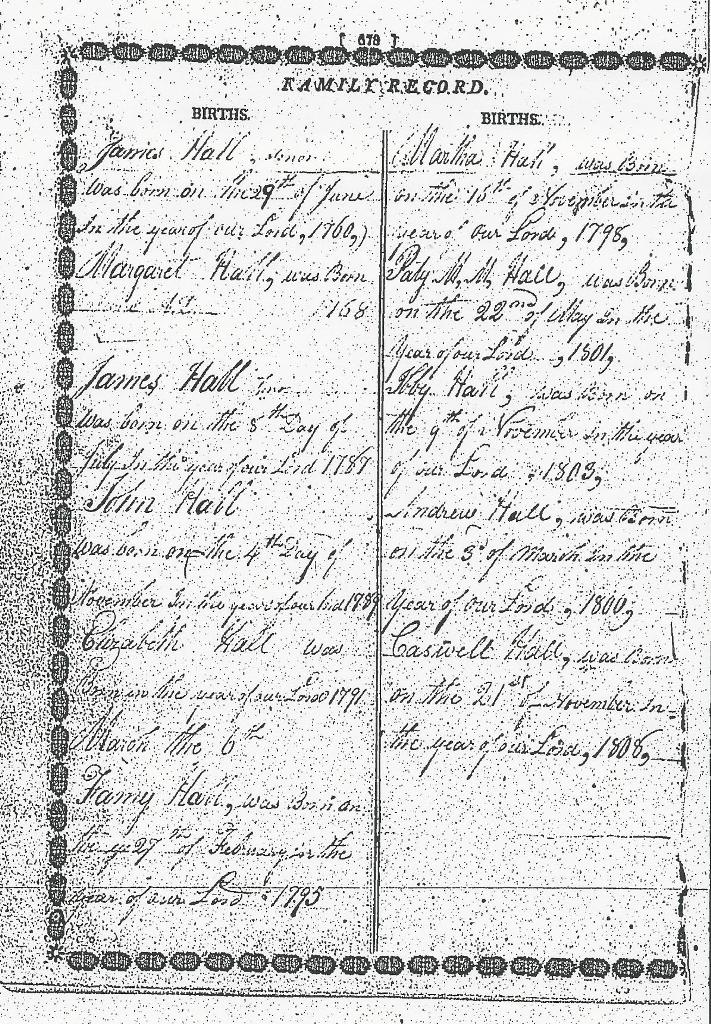 [ 678 ]
FAMILY RECORD.
BIRTHS.
James Hall, senor
was born on the 29th of June
In the year of our Lord, 1760,)
Margaret Hall, was Born
A.D. 168
James Hall
was born on the 8th Day of
July In the year of our Lord 1787
John Hall
was born on the 4th Day of
November In the year of our Lord 1789
Elizabeth Hall was
Born in the year of our Lord 1791
March the 6th
Famy Hall, was Born on
the 27th of February in the
year of our Lord 1795
BIRTHS.
Martha Hall, was Born
on the 16th of November in the
year of our Lord, 1798,
Paty M. M. Hall, was Born
on the 22nd of May in the
Year of our Lord, 1801,
Hall, was Born on
the 9th of November in the year
of our Lord, 1803,
Andrew Hall, was Born
on the 3d of March in the
Year of our Lord, 1800,
Caswell Hall, was Born
on the 21st of November in
the year of our Lord, 1808,